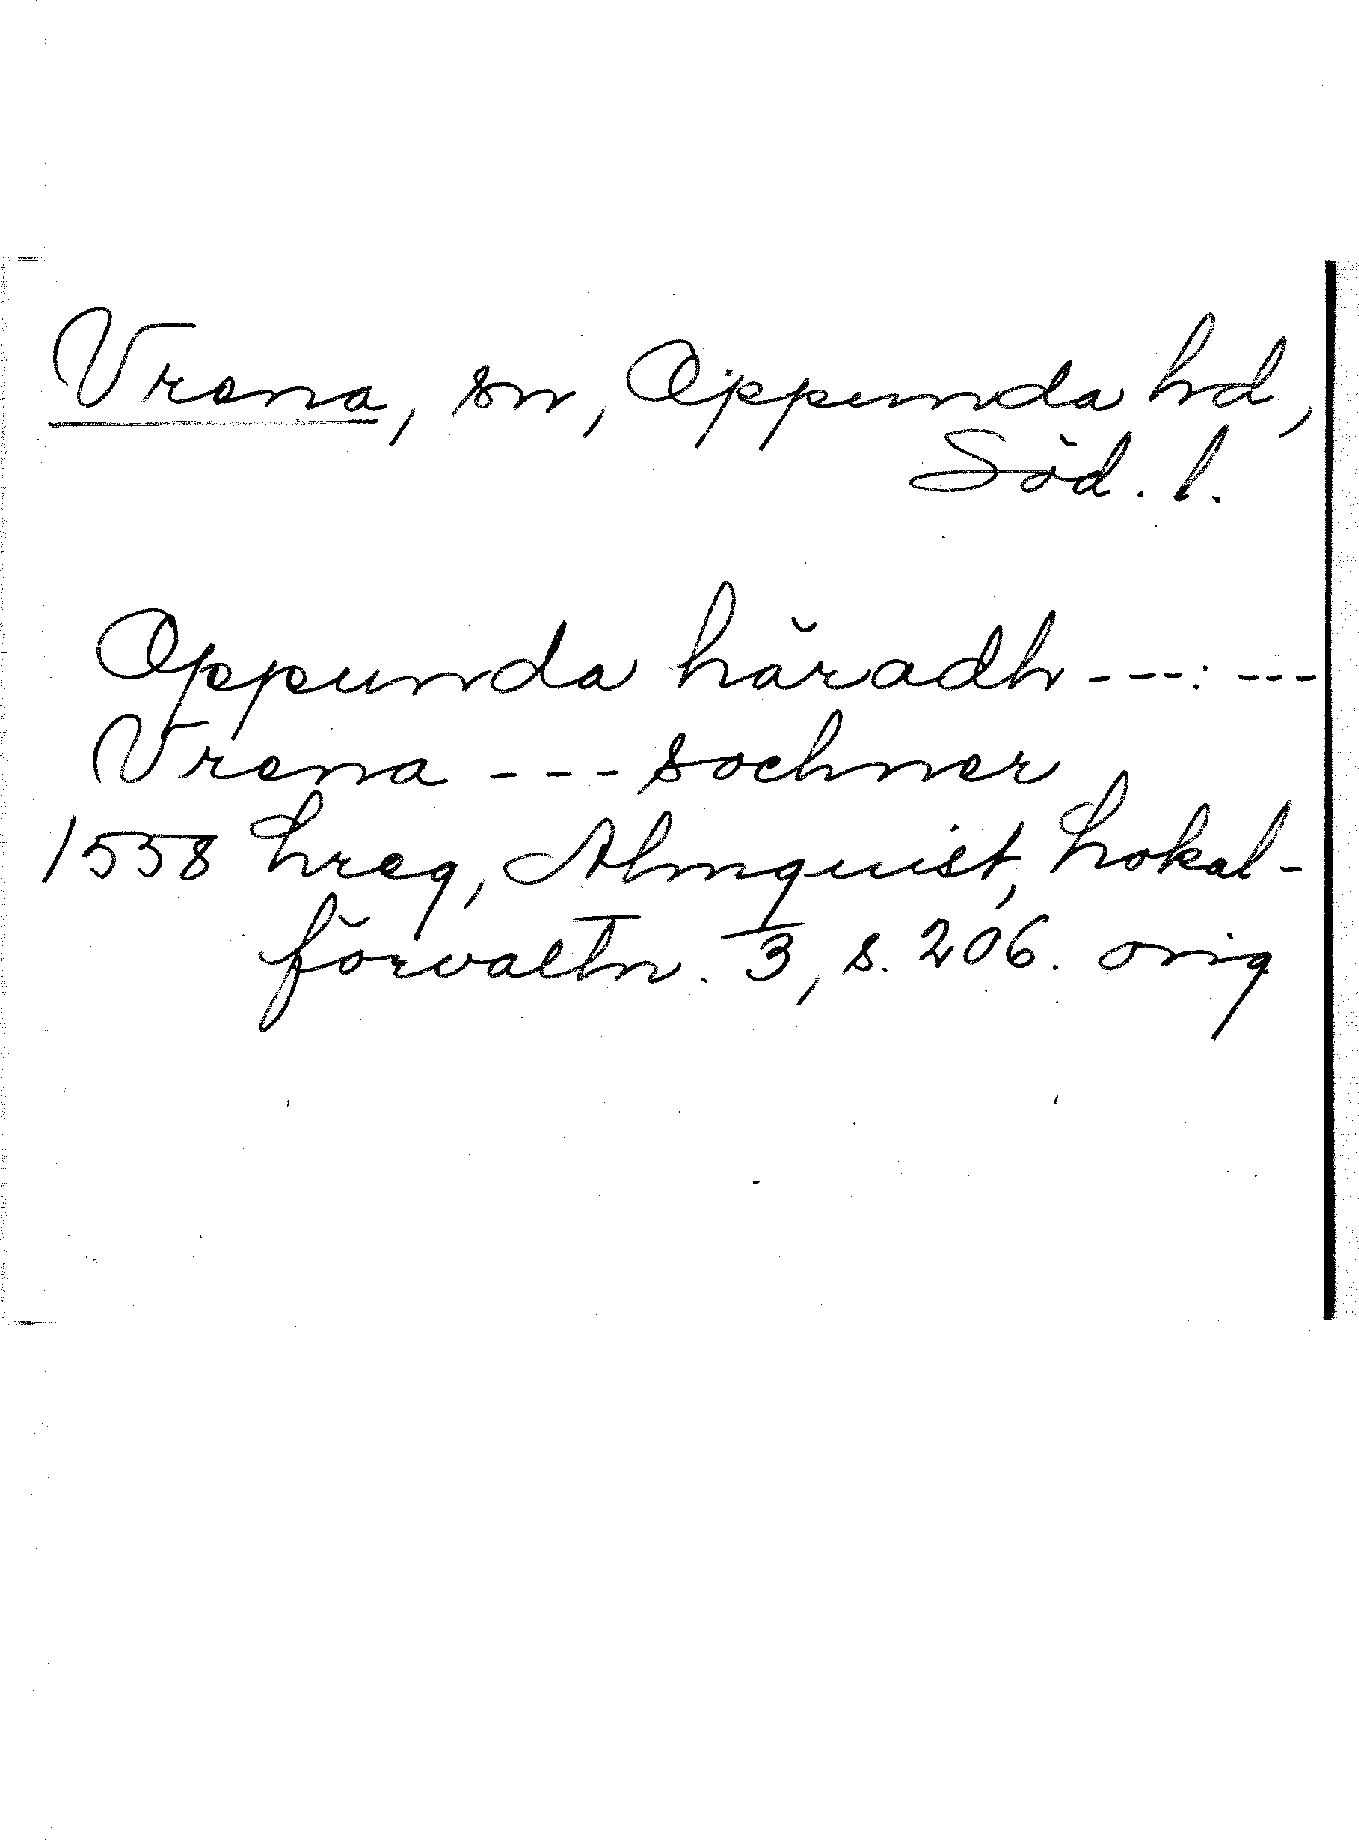 Vrena, sn, Oppunda hd,
Söd. l.
Oppunda häradh ---:---
Vrena --- sochner
1558 Lreg, Almquist, Lokal-
förvaltn. 3, s. 206. orig